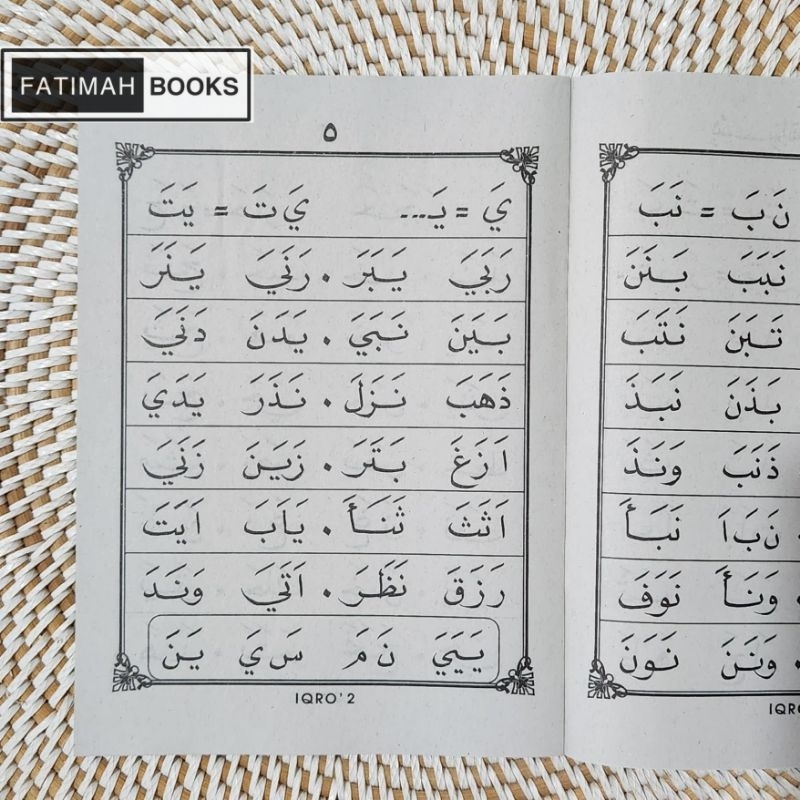 FATIMAH BOOKS
٥
يَ = يَـ... يَ تَ = يَتَ
رَبَيَ يَبَرَ . رَنَيَ يَنَرَ
بَيَنَ نَبَيَ . يَدَنَ دَنَيَ
ذَهَبَ نَزَلَ . نَذَرَ يَدَيَ
اَزَغَ بَتَرَ . زَيَنَ زَنَيَ
اَثَثَ ثَنَأَ . يَاَبَ اَيَتَ
رَزَقَ نَظَرَ . اَتَيَ وَنَدَ
يَيَيَ نَ مَ سَ يَ يَنَ
IQRO' 2
نَ بَ = نَبَ
نَبَبَ بَنَنَ
تَبَنَ نَتَبَ
بَذَنَ نَبَذَ
ذَنَبَ وَنَذَ
. نَ بَ اَ نَبَأَ
. وَنَأَ نَوَفَ
. وَنَنَ نَوَنَ